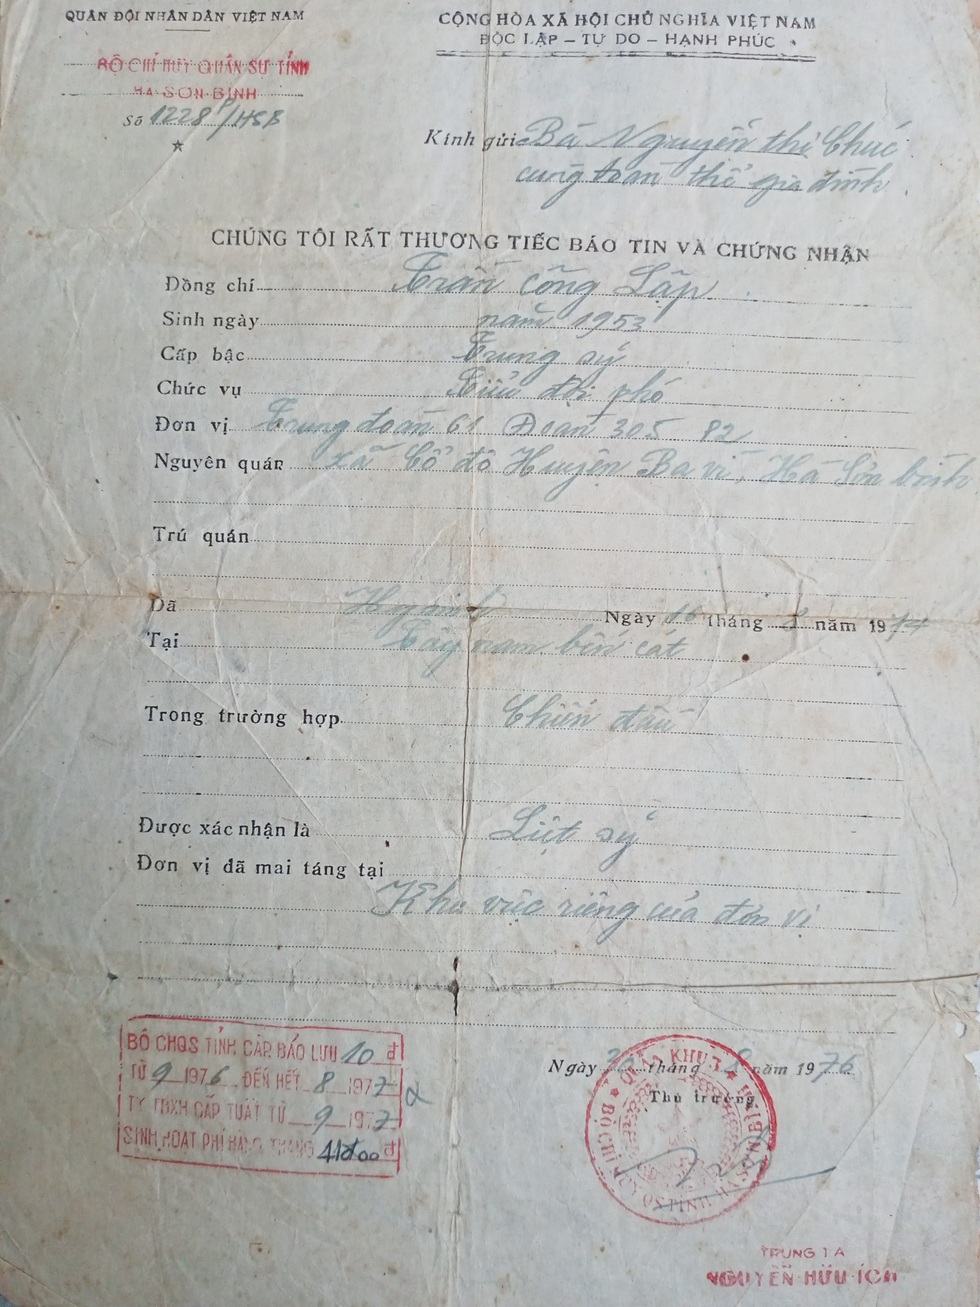 QUÂN ĐỘI NHÂN DÂN VIỆT NAM
CỘNG HÒA XÃ HỘI CHỦ NGHĨA VIỆT NAM
ĐỘC LẬP – TỰ DO – HẠNH PHÚC
BỘ CHỈ HUY QUÂN SỰ TỈNH
HÀ SƠN BÌNH
Số 1228P/HSB
Kính gửi Bà Nguyễn thị Chúc
cùng toàn thể gia đình
CHÚNG TÔI RẤT THƯƠNG TIẾC BÁO TIN VÀ CHỨNG NHẬN
Đồng chí Trần công Lập
Sinh ngày năm 1953
Cấp bậc Trung sỹ
Chức vụ Tiểu đội phó
Đơn vị Trung đoàn 61 Đoàn 305 82
Nguyên quán xã Cổ đô Huyện Ba vì, Hà Sơn bình
Trú quán
Đã Hy sinh Ngày 16 tháng năm 1974
Tại Tây nam bến cát
Trong trường hợp Chiến đấu
Được xác nhận là Liệt sỹ
Đơn vị đã mai táng tại
Khu vực riêng của đơn vị
BỘ CHQS TỈNH CẤP BÁO LƯU 10 đ
TỪ 9 1976 ĐẾN HẾT 8 1977
TY TBXH CẤP TUẤT TỪ 9 1977
SINH HOẠT PHÍ HÀNG THÁNG đ
Ngày tháng 8 năm 1976
Thủ trưởng
QUÂN KHU 3
TRUNG TÁ
NGUYỄN HỮU ÍCH